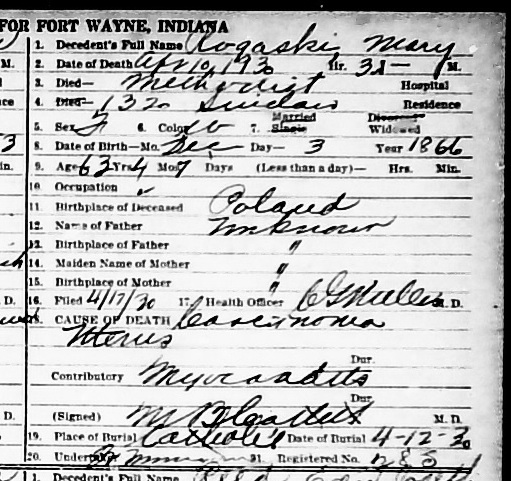 FOR FORT WAYNE, INDIANA
1. Decedent's Full Name Rogaski Mary
2. Date of Death Apr 10, 1930 Hr. 3 M.
3. Died— Methodist Hospital
4. Died— 1320 Sinclair Residence
5. Sex F 6. Color W 7. Married Single Divorced Widowed
8. Date of Birth—Mo. Dec Day— 3 Year 1866
9. Age 63 Yrs 4 Mos 7 Days (Less than a day)— Hrs. Min.
10. Occupation
11. Birthplace of Deceased Poland
12. Name of Father Unknown
13. Birthplace of Father "
14. Maiden Name of Mother "
15. Birthplace of Mother "
16. Filed 4/17/30 17. Health Officer M. D.
18. CAUSE OF DEATH Carcinoma
Uterus
Dur.
Contributory Myocarditis
Dur.
(Signed) M. D.
19. Place of Burial Catholic Date of Burial 4-12-30
20. Undertaker 21. Registered No.
1. Decedent's Full Name